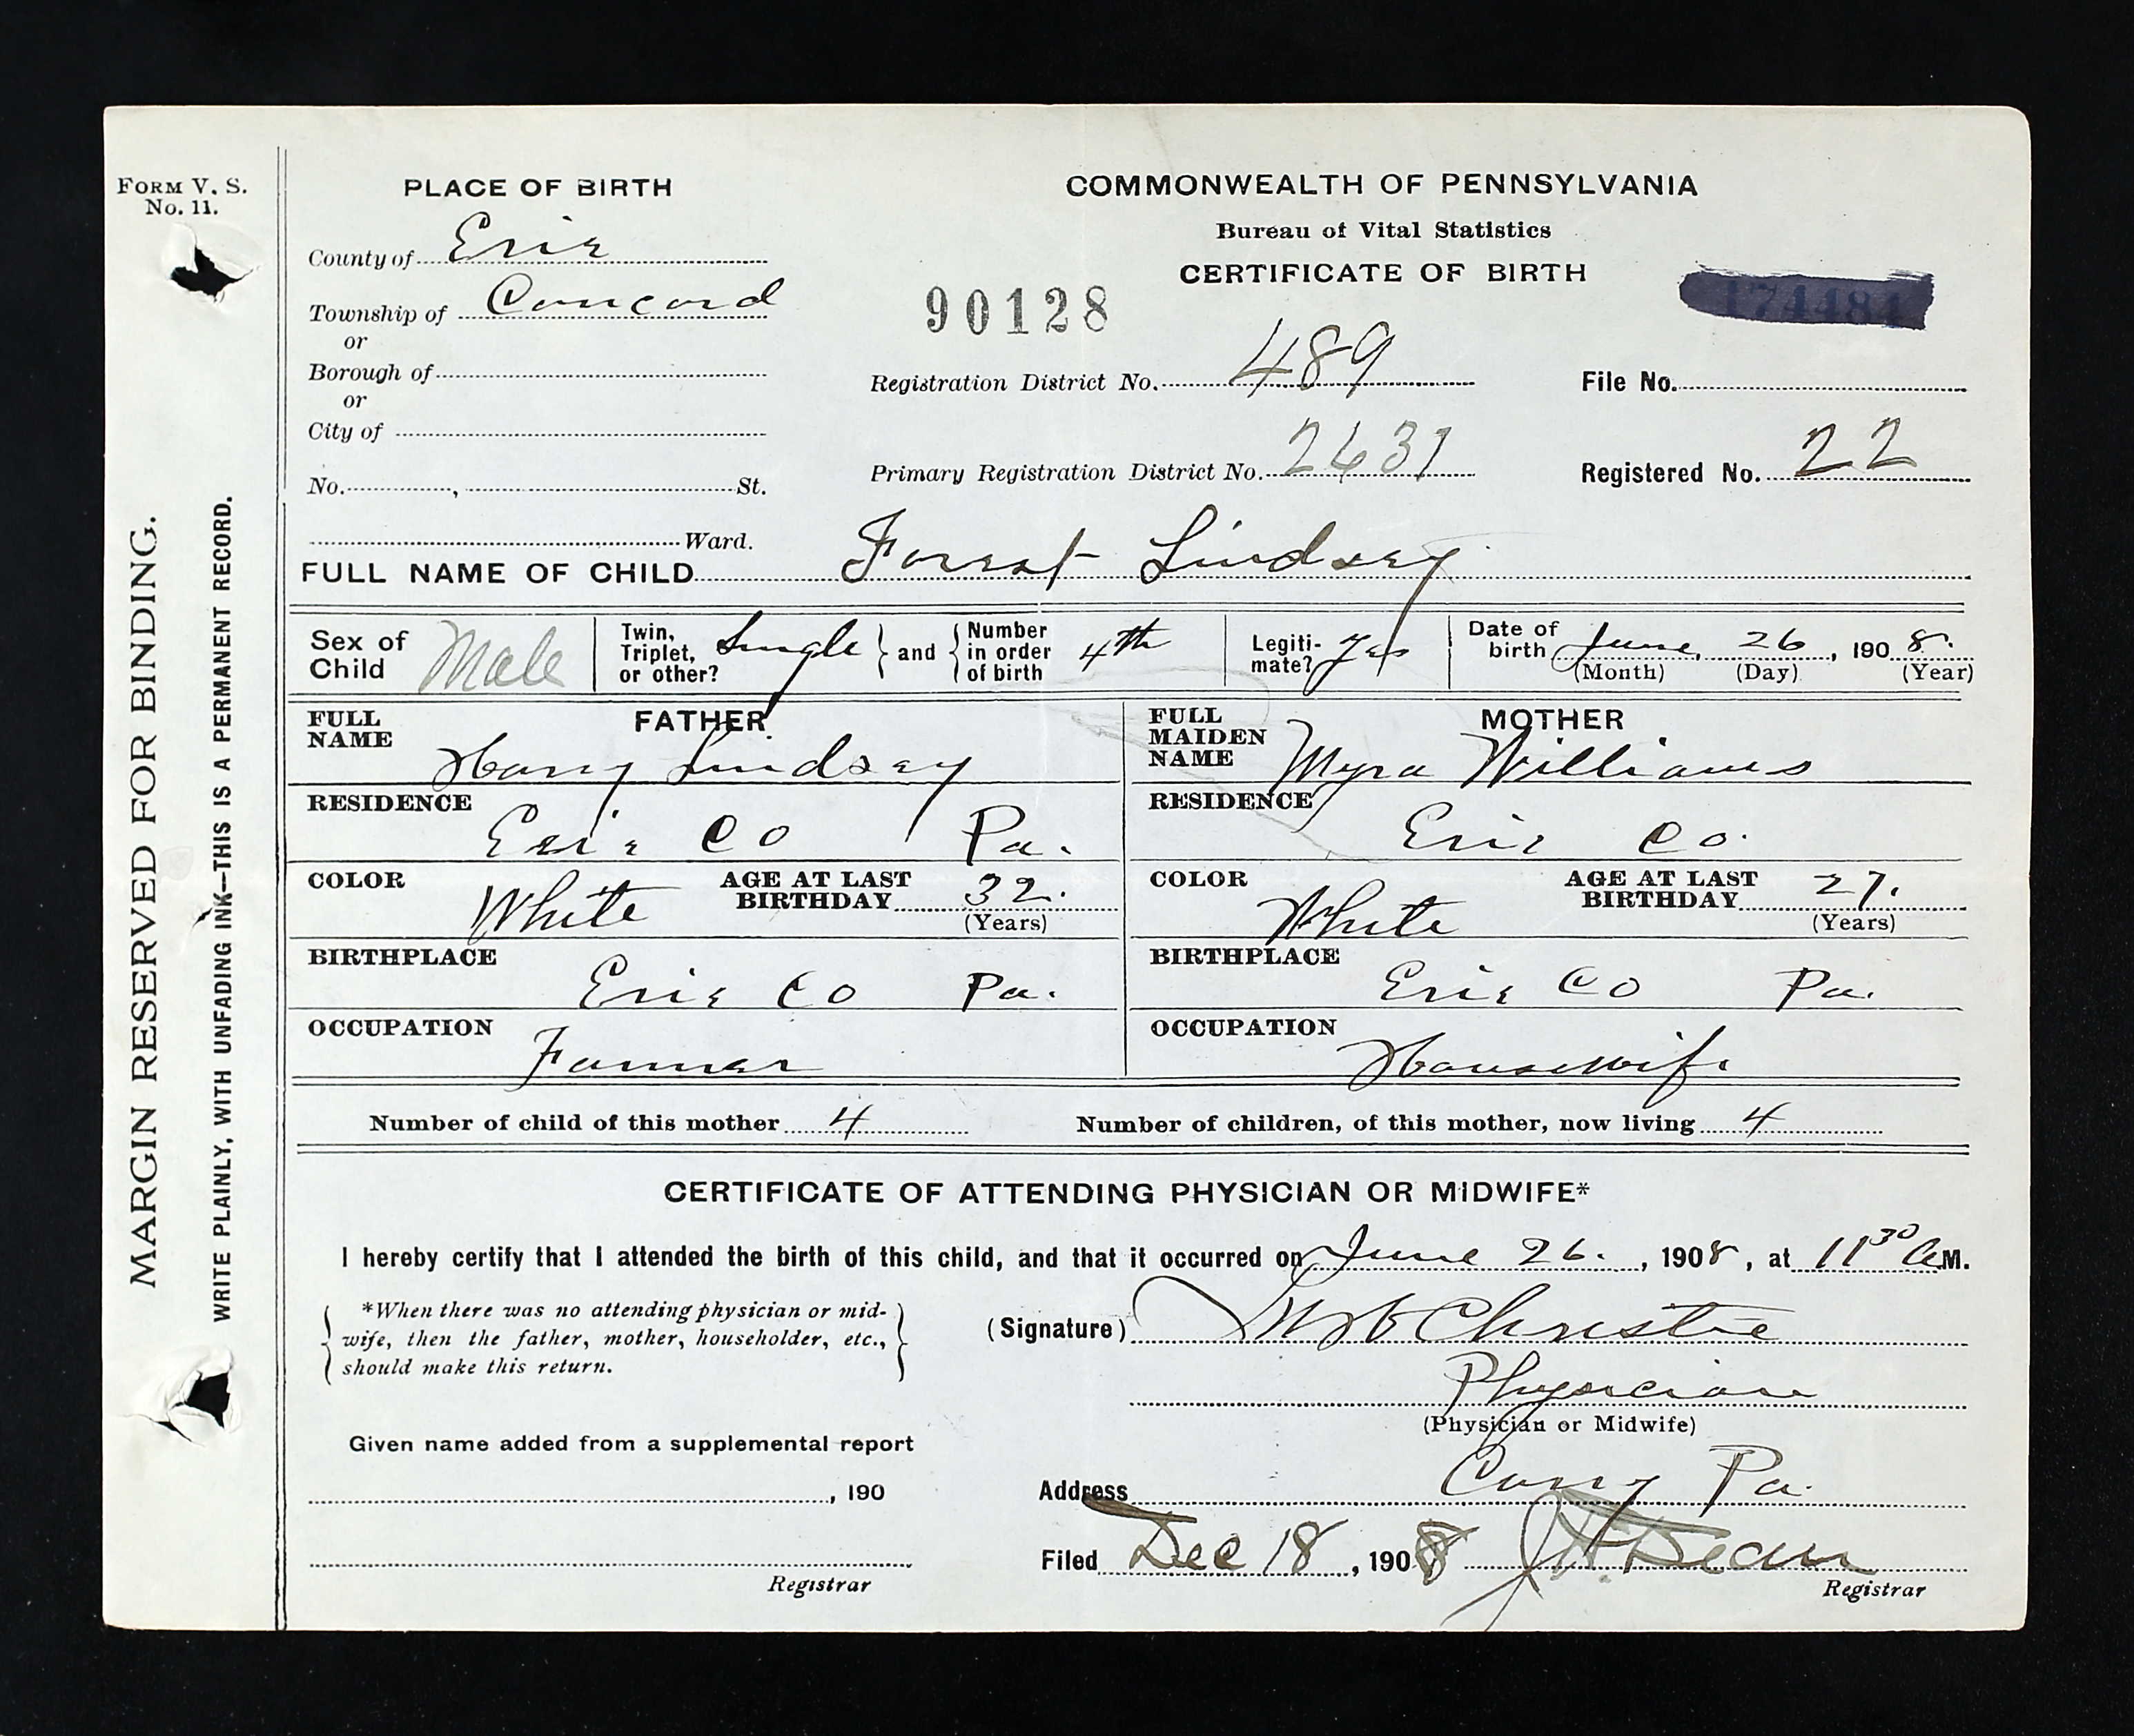 FORM V. S.
No. 11.
MARGIN RESERVED FOR BINDING.
WRITE PLAINLY, WITH UNFADING INK—THIS IS A PERMANENT RECORD.
PLACE OF BIRTH
County of Erie
Township of Concord
or
Borough of
or
City of
No. , St.
Ward.
COMMONWEALTH OF PENNSYLVANIA
Bureau of Vital Statistics
CERTIFICATE OF BIRTH
90128
174484
Registration District No. 489
File No.
Primary Registration District No. 2631
Registered No. 22
FULL NAME OF CHILD Forest Lindsey
Sex of Child Male
Twin, Triplet, or other? Single } and { Number in order of birth 4th
Legitimate? Yes
Date of birth June 26, 1908.
(Month) (Day) (Year)
FATHER
FULL NAME Harry Lindsey
RESIDENCE Erie Co Pa.
COLOR White AGE AT LAST BIRTHDAY 32.
(Years)
BIRTHPLACE Erie Co Pa.
OCCUPATION Farmer
MOTHER
FULL MAIDEN NAME Myra Williams
RESIDENCE Erie Co.
COLOR White AGE AT LAST BIRTHDAY 27.
(Years)
BIRTHPLACE Erie Co Pa.
OCCUPATION Housewife
Number of child of this mother 4 Number of children, of this mother, now living 4
CERTIFICATE OF ATTENDING PHYSICIAN OR MIDWIFE*
I hereby certify that I attended the birth of this child, and that it occurred on June 26. , 1908, at 11 30 A M.
*When there was no attending physician or mid-
wife, then the father, mother, householder, etc.,
should make this return.
(Signature) Christie
Physician
(Physician or Midwife)
Given name added from a supplemental report
, 190
Registrar
Address Corry Pa.
Filed Dec 18, 1908 J. H. Dean
Registrar